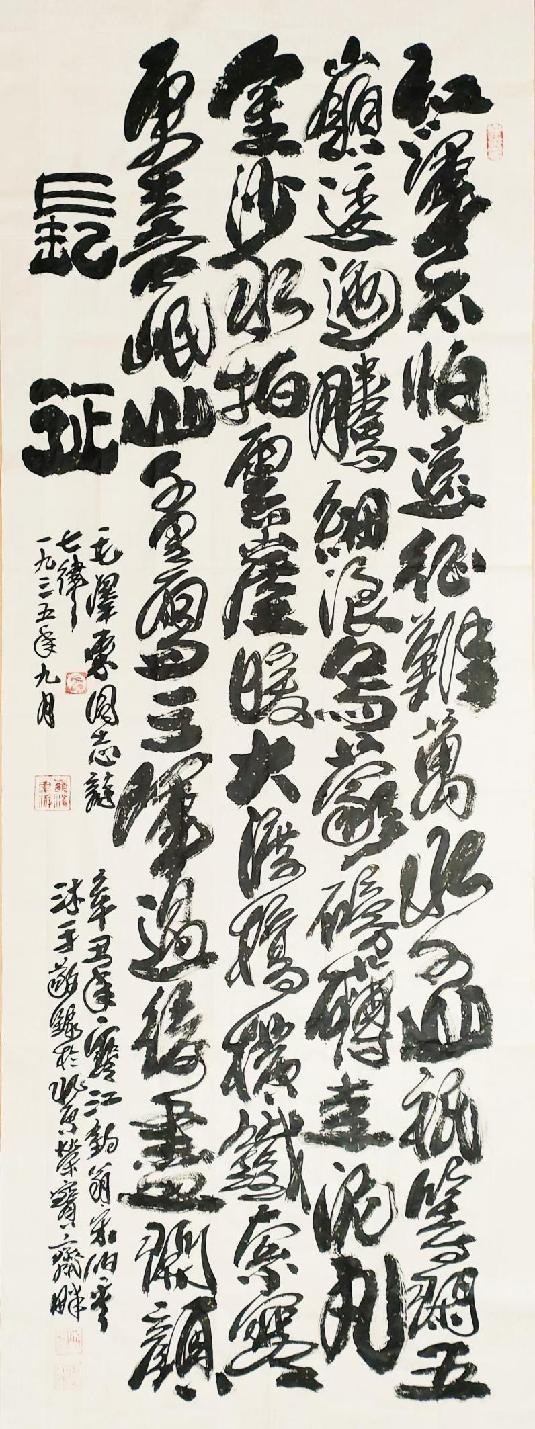 紅軍不怕遠征難萬水千山祇等閑五
嶺逶迤騰細浪烏蒙磅礴走泥丸
金沙水拍雲崖暖大渡橋橫鐵索寒
更喜岷山千里雪三軍過後盡開顏
長征
毛澤東同志詩
七律
一九三五年九月
辛丑年江釣翁
沐手敬錄於北京榮寶齋畔